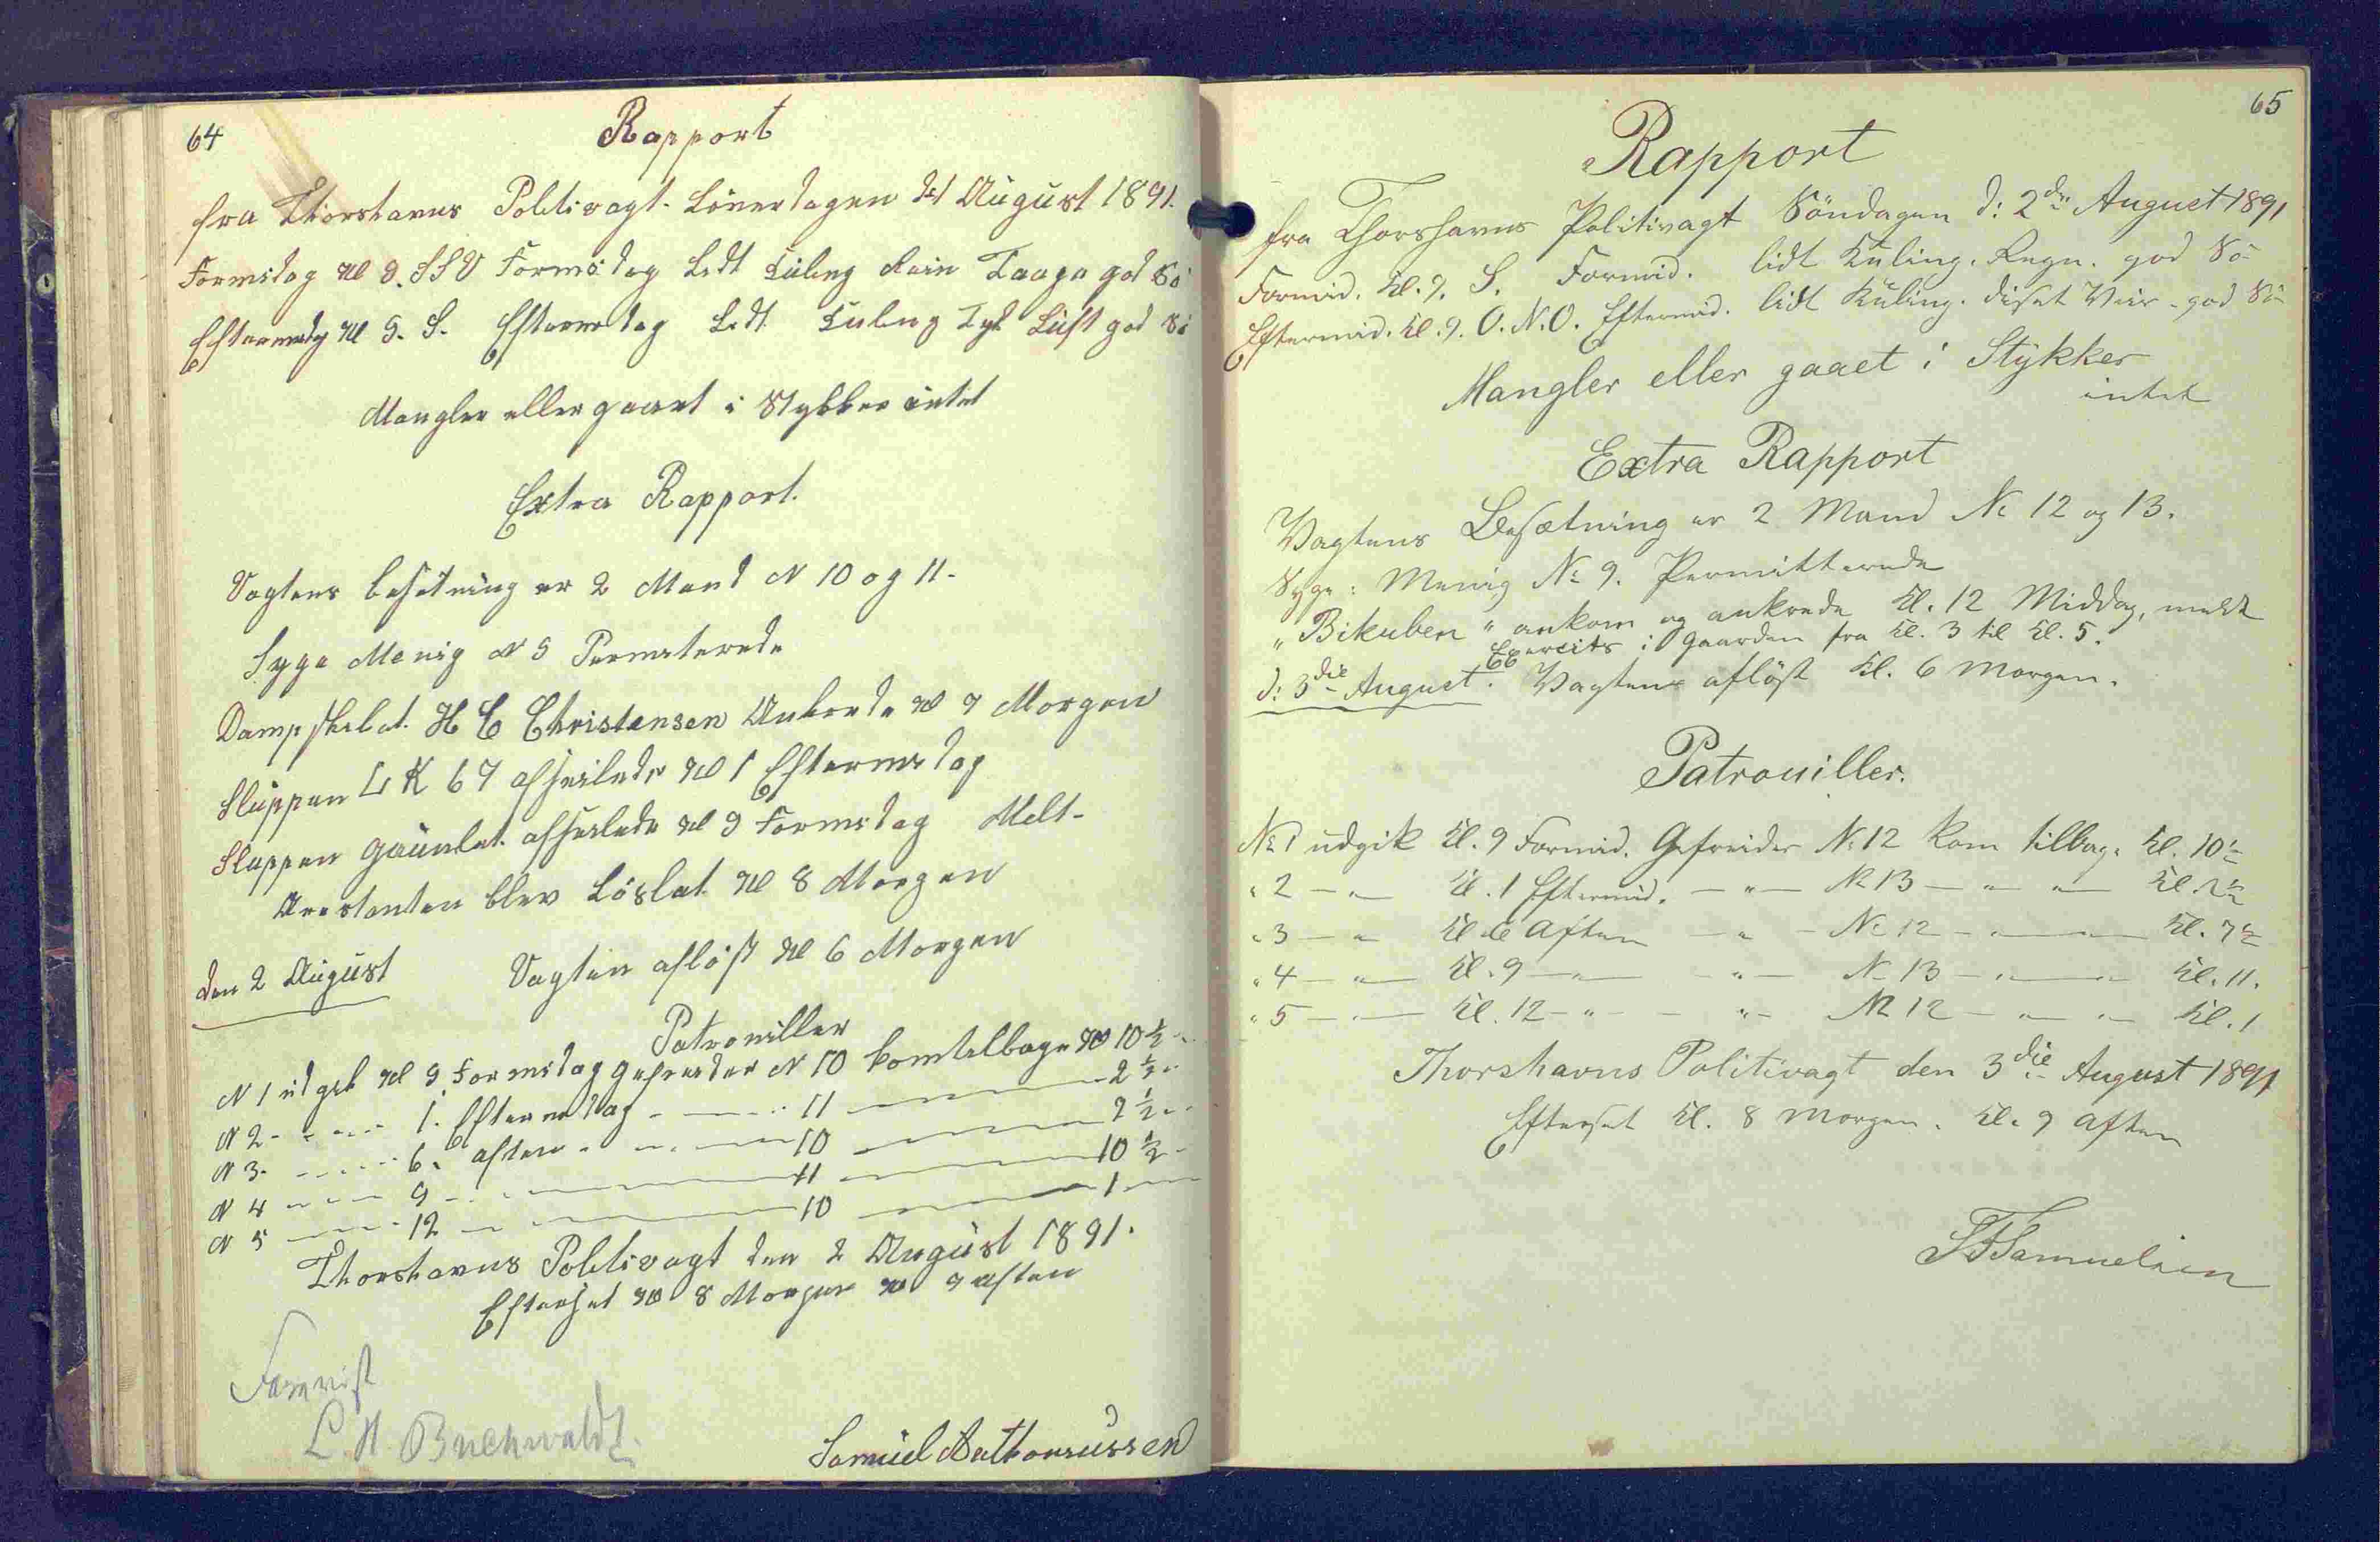 64
Rapport
fra Thorshavns Politivagt. Löverdagen d: 1 August 1891.
Formidag Kl 9. SSV Formidag Lidt Kuling Rein Taage god Sö
Eftermidg Kl 9. S. Eftermidag Lidt Kuling Tyk Luft god Sö
Mangler eller gaaet i Stykker intet
Extra Rapport.
Vagtens besetning er 2 Mand N 10 og 11.
Syge Menig N 9 Permiterede
Dampskibet. H C Christensen Ankrede Kl 7 Morgen
Sluppen L K 67 afseilede Kl 1 Eftermidag
Sluppen Gauntlet. afseilede Kl 9 Formidag Melt.
Arestanten blev Löslat Kl 8 Morgen
den 2 August Vagten aflöst Kl 6 Morgen
Patrouiller
N 1 udgik Kl 9 Formidag gefreider N 10 kom tilbage Kl 10 ½
N 2 - - - - 1. Eftermidag - - - 11 - - - 2 ½
N 3 - - - - 6. aften - - - 10 - - - 2 ½
N 4 - - - 9 - - - 11 - - - 10 ½
N 5 - - - 12 - - - 10 - - - 1
Thorshavns Politivagt den 2 August 1891.
Efterset Kl 8 Morgen Kl 9 aften
L. H. Buchwaldt.
65
Rapport
fra Thorshavns Politivagt Söndagen d: 2den August 1891
Formid. Kl. 9. S. Formid. lidt Kuling. Regn. god Sö
Eftermid. Kl. 9. O.N.O. Eftermid. lidt Kuling. diset Veir - god Sö
Mangler eller gaaet i Stykker
intet
Extra Rapport
Vagtens Besætning er 2 Mand No 12 og 13.
Syge: Menig No 9. Permitterede
"Bikuben" ankom og ankrede Kl. 12 Middag, meldt
Exercits i Gaarden fra Kl. 3 til Kl. 5.
d: 3die August. Vagten aflöst Kl. 6 Morgen.
Patrouiller.
No 1 udgik Kl. 9 Formid. Gefreider No 12 kom tilbage Kl. 10½
" 2 - " - Kl. 1 Eftermid. - " - No 13 - " - " - Kl. 2½
" 3 - " Kl. 6 Aften - " - No 12 - " - " - Kl. 7½
" 4 - " - Kl. 9 - " - - " - No 13 - " - " - Kl. 11.
" 5 - " - Kl. 12 - " - - " - No 12 - " - " - Kl. 1
Thorshavns Politivagt den 3die August 1891
Efterset Kl. 8 Morgen. Kl. 9 Aften
Samuelsen